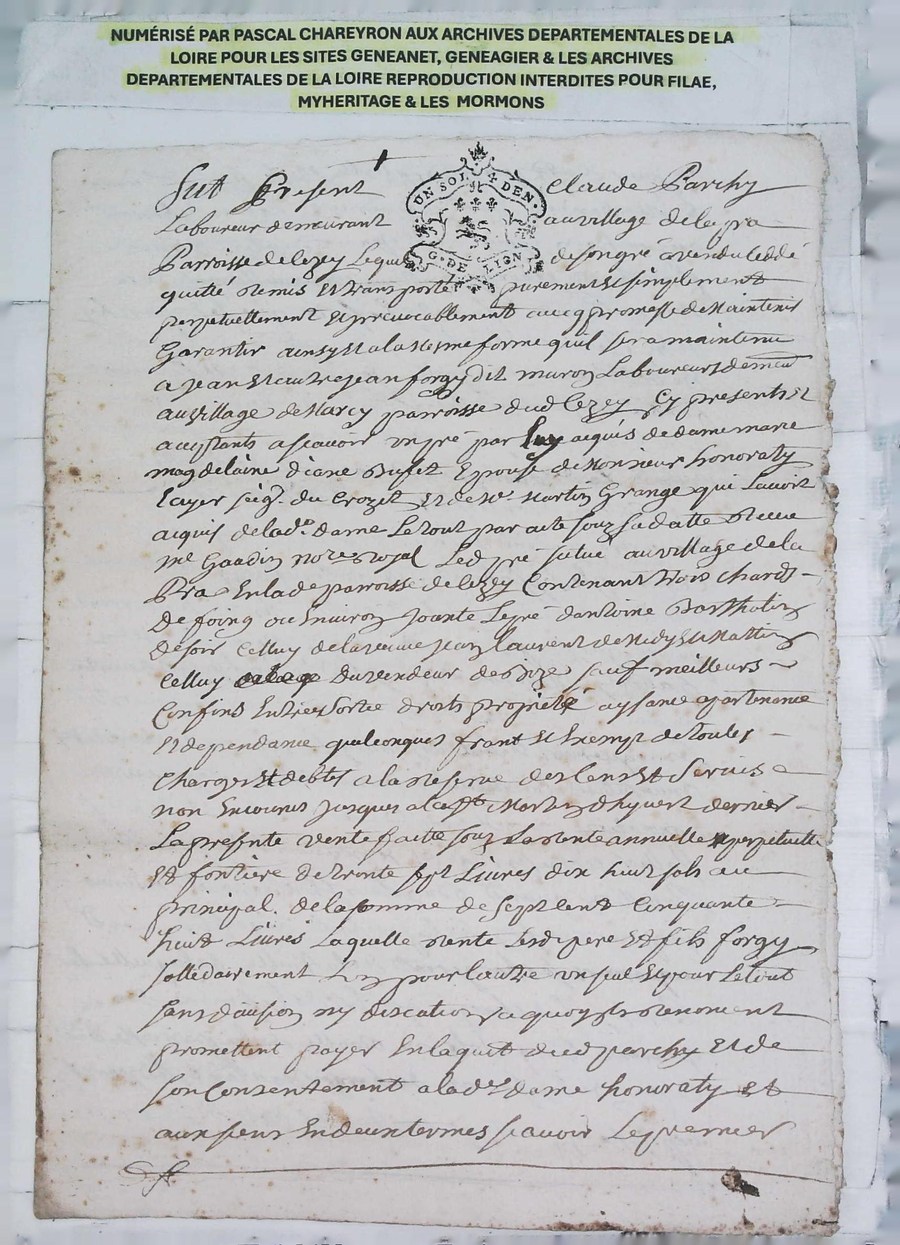 NUMÉRISÉ PAR PASCAL CHAREYRON AUX ARCHIVES DEPARTEMENTALES DE LA
LOIRE POUR LES SITES GENEANET, GENEAGIER & LES ARCHIVES
DEPARTEMENTALES DE LA LOIRE REPRODUCTION INTERDITES POUR FILAE,
MYHERITAGE & LES MORMONS
UN SOL 4 DEN.
G. DE LION
Fut Present Claude Parchy
Laboureur demeurant au village de la pra
Parroisse de lezey Lequel de son gré a vendu ceddé
quitté Remis Et transporté purement Et simplement
perpetuellement Et jrrevocablement avecq promesse de Maintenir
Garantir ainsy Et a la mesme forme quil sera maintenu
a jean Et autre jean forgy dit muron Laboureurs dem
au village de Marcy parroisse dud lezey Cy presents Et
acceptants a scavoir un pré par luy acquis de dame marie
magdelaine diane Buset Epouse de Monsieur honoraty
seigr du Crozet Et de Mr Martin Grange qui Lavoit
acquis de lade dame Le tout par acte souz sa datte Receu
me Gaudin nore Royal Led pré situé au village de la
Pra En lade parroisse de lezey Contenant trois Chards
de foing ou Environ joute Le pré dantoine Bartholin
de soir Celluy de la veuve jean laurent de Midy Et Mattin
Celluy du vendeur de bize sauf meilleurs
Confins Entrées sortie droits proprieté aysance apartenance
Et dependance quelconques franc Et Exempt de toutes
Charges Et debtes a la Reserve des Cens Et Servis
non Encourus jusques a la st Martin dhyvert dernier
La presente vente faitte souz La rente annuelle perpetuelle
Et fontiere de trente sept Livres dix huit sols au
principal de la somme de Sept Cent Cinquante
huit Livres Laquelle Rente Lesd pere Et fils forgy
sollidairement Lun pour lautre un seul Et pour Le tout
sans division ny discution a quoy ils Renoncent
promettent payer En laquit dud parchy Et de
son Consentement a lade dame honoraty Et
aux siens En deux termes scavoir Le premier